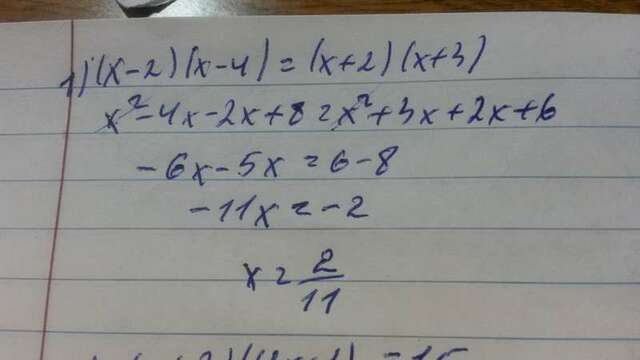 1) (x-2)(x-4) = (x+2)(x+3)
x²-4x-2x+8=x²+3x+2x+6
-6x-5x=6-8
-11x=-2
x=2/11
=15